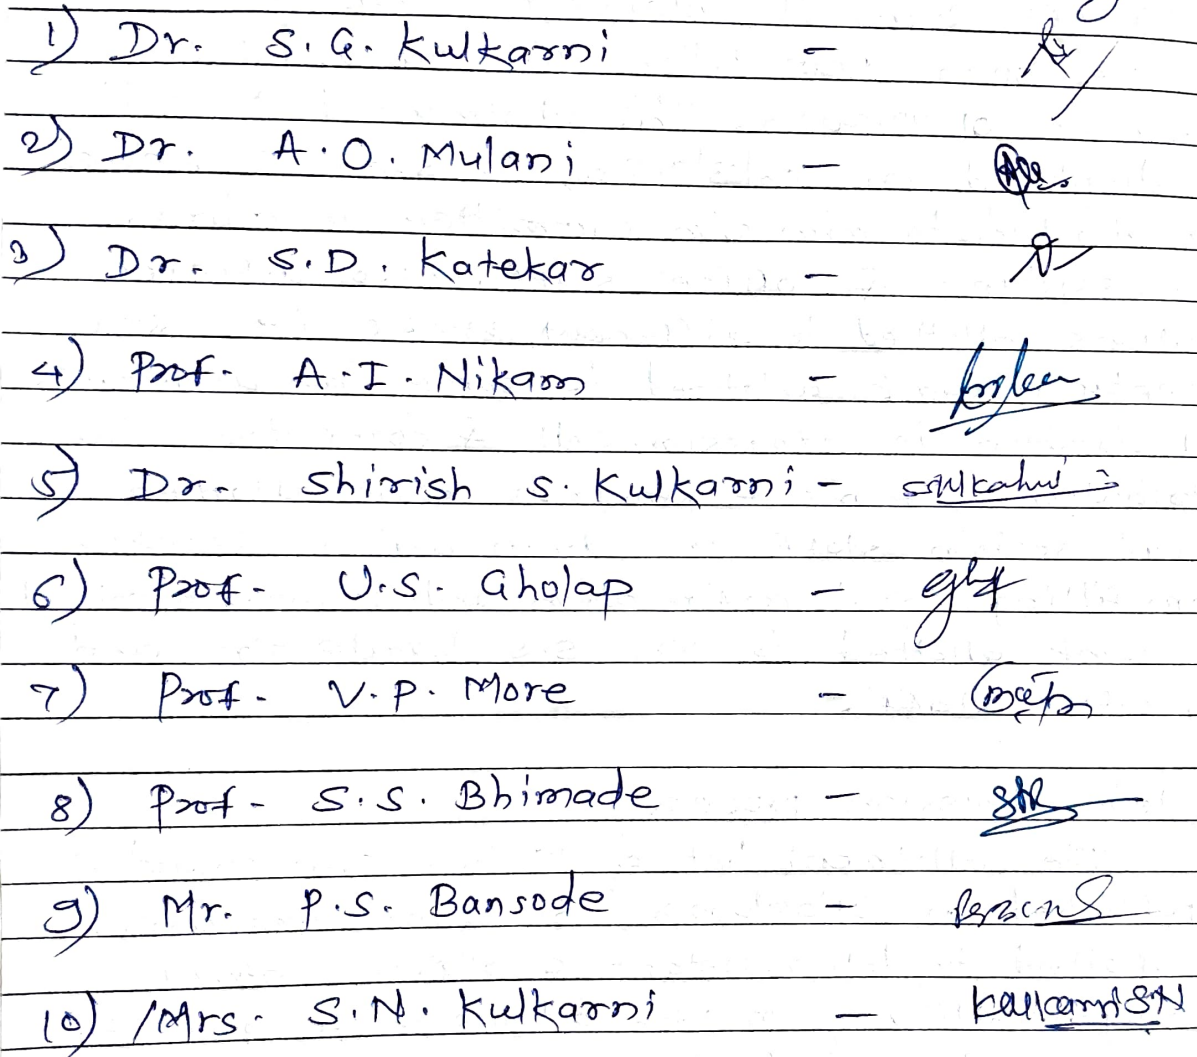 1) Dr. S. G. Kulkarni -
2) Dr. A. O. Mulani -
3) Dr. S. D. Katekar -
4) Prof. A. I. Nikam -
5) Dr. Shirish S. Kulkarni -
6) Prof. U. S. Gholap -
7) Prof. V. P. More -
8) Prof - S. S. Bhimade -
9) Mr. P. S. Bansode -
10) Mrs. S. N. Kulkarni - Kulkarni SN